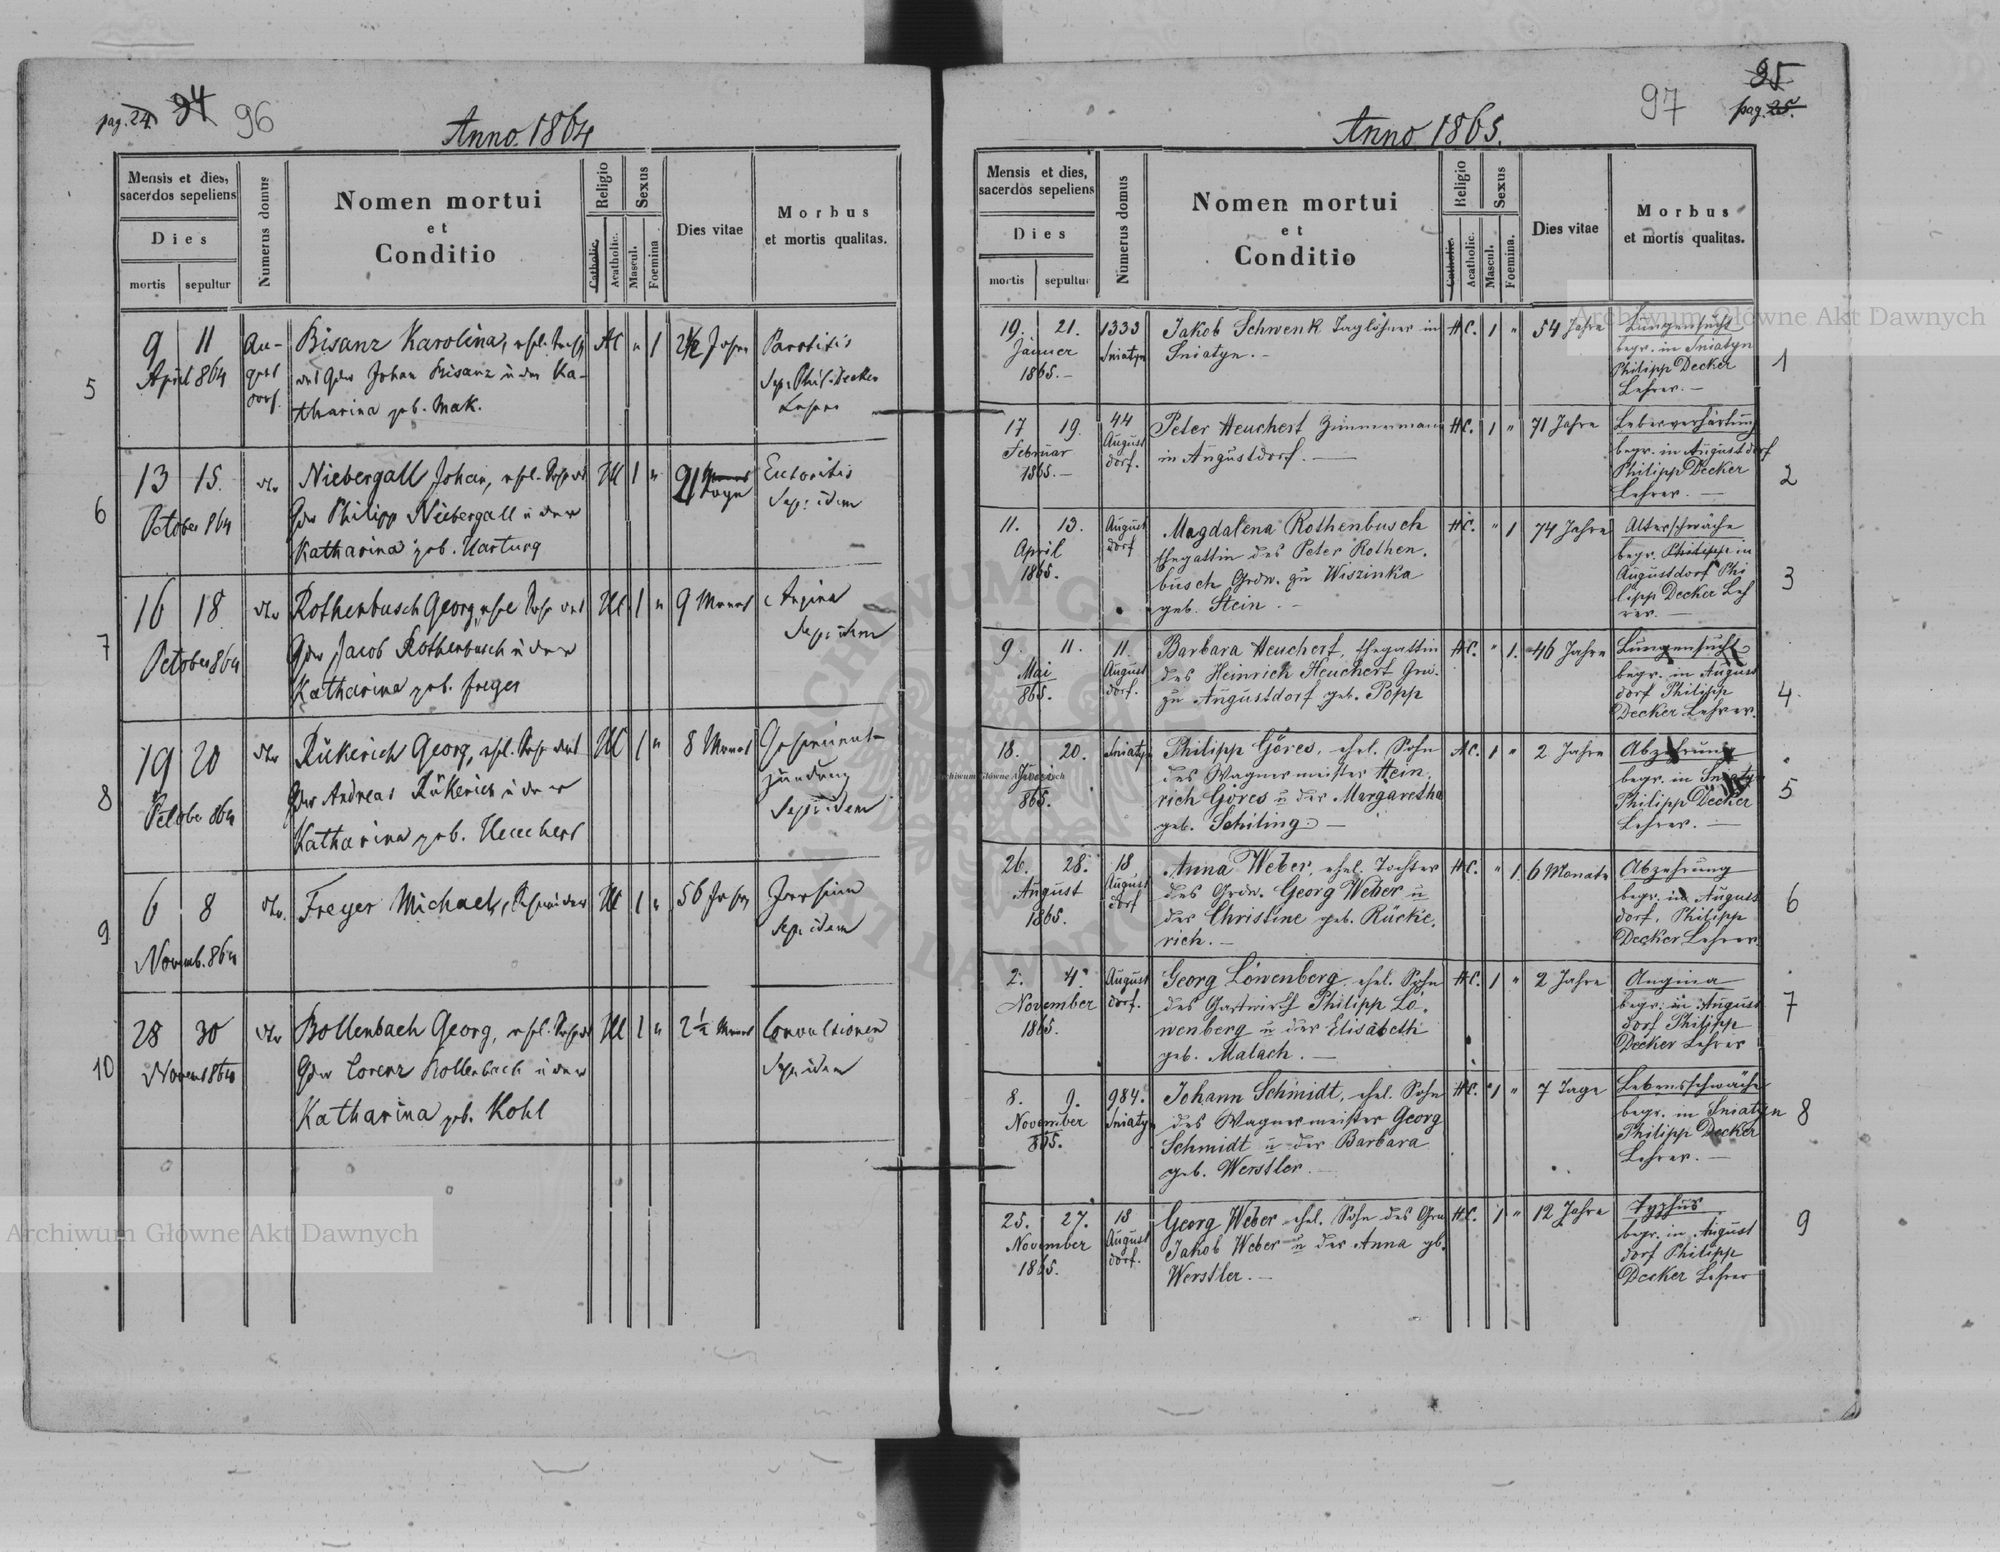 pag. 24. 94 96
Anno 1864
Mensis et dies,
sacerdos sepeliens
Dies
mortis sepultur
Numerus domus
Nomen mortui
et
Conditio
Religio
Catholic.
Acatholic.
Sexus
Mascul.
Foemina
Dies vitae
Morbus
et mortis qualitas.
5
9 11
April 864
Au-
gust
dorf.
Bisanz Karolina, ehel. Tocht
des Gdw Johan Bisanz u der Ka-
tharina geb. Mak.
AC " 1
2½ Jahre
Parotitis
Sep: Phil: Decker
Lehrer
6
13 15.
October 864
dto
Niebergall Johan, ehel. Sohn des
Gdw Philipp Niebergall u der
Katharina geb. Hartung
AC 1 "
21 Tage
Sep: idem
7
16 18
October 864
dto
Rothenbusch Georg, ehe Sohn des
Gdw Jacob Rothenbusch u der
Katharina geb. Freyer
AC 1 "
9 Monat
Angina
Sep: idem
8
19 20
October 864
dto
Rükerich Georg, ehl. Sohn des
Gdw Andreas Rükerich u der
Katharina geb. Heuchert
AC 1 "
8 Monat
Gehirnent-
zündung
Sep: idem
9
6 8
Novemb. 864
dto.
Freyer Michael, Schneider
AC 1 "
56 Jahr
Irrsinn
Sep: idem
10
28 30
Novem 864
dto
Bollenbach Georg, ehel. Sohn des
Gdw Lorenz Bollenbach u der
Katharina geb. Kohl
AC 1 "
2½ Monat
Convulsionen
Sep: idem
97 95
pag. 25.
Anno 1865.
Mensis et dies,
sacerdos sepeliens
Dies
mortis sepultur
Numerus domus
Nomen mortui
et
Conditio
Religio
Catholic.
Acatholic.
Sexus
Mascul.
Foemina.
Dies vitae
Morbus
et mortis qualitas.
19. 21.
Jänner
1865.–
1333
Sniatyn
Jakob Schwenk Taglöhner in
Sniatyn.–
AC. 1 "
54 Jahre
Lungensucht
begr. in Sniatyn
Philipp Decker
Lehrer.–
1
17 19.
Februar
1865.–
44
August
dorf.
Peter Heuchert Zimmermann
in Augustdorf.–
AC. 1 "
71 Jahre
Leberverhärtung
begr. in Augustdorf
Philipp Decker
Lehrer.–
2
11. 13.
April
1865.
August
dorf
Magdalena Rothenbusch
Ehegattin des Peter Rothen,
busch Grdw. zu Wiszinka
geb. Stein.–
AC. " 1
74 Jahre
Altersschwäche
begr. Philipp in
Augustdorf Phi
lipp Decker Leh
rer.–
3
9. 11.
Mai
865.
11.
August
dorf.
Barbara Heuchert, Ehegattin
des Heinrich Heuchert Gru.
zu Augustdorf geb. Popp
AC. " 1.
46 Jahre
Lungensucht
begr. in August
dorf Philipp
Decker Lehrer.
4.
18. 20.
Juni
865.
Sniatyn
Philipp Göres, ehel. Sohn
des Wagnermeister Hein,
rich Göres u der Margaretha
geb. Schiling.–
AC. 1 "
2 Jahre
Abzehrung
begr. in Sniatyn
Philipp Decker
Lehrer.–
5
26. 28.
August
1865.
18
August
dorf
Anna Weber, ehel. Tochter
des Grdw. Georg Weber u
der Christine geb. Rücke,
rich.–
AC. " 1.
6 Monate
Abzehrung
begr. in August
dorf, Philipp
Decker Lehrer
6
2. 4.
November
1865.
August
dorf.
Georg Löwenberg, ehel. Sohn
des Gastwirth Philipp Lö,
wenberg u der Elisabeth
geb. Malach.–
AC. 1 "
2 Jahre
Angina
begr. in August
dorf Philipp
Decker Lehrer
7
8. 9.
November
865.
984.
Sniatyn
Johann Schmidt, ehel. Sohn
des Wagnermeister Georg
Schmidt u der Barbara
geb. Werstler.–
AC. 1 "
7 Tage
Lebensschwäche
begr. in Sniatyn
Philipp Decker
Lehrer.–
8
25. 27.
November
1865.
18
August
dorf.
Georg Weber ehel. Sohn des Gru
Jakob Weber u der Anna gb.
Werstler.–
AC. 1 "
12 Jahre
Typhus
begr. in August
dorf Philipp
Decker Lehrer
9
Archiwum Główne Akt Dawnych
Archiwum Główne Akt Dawnych
Archiwum Główne Akt Dawnych